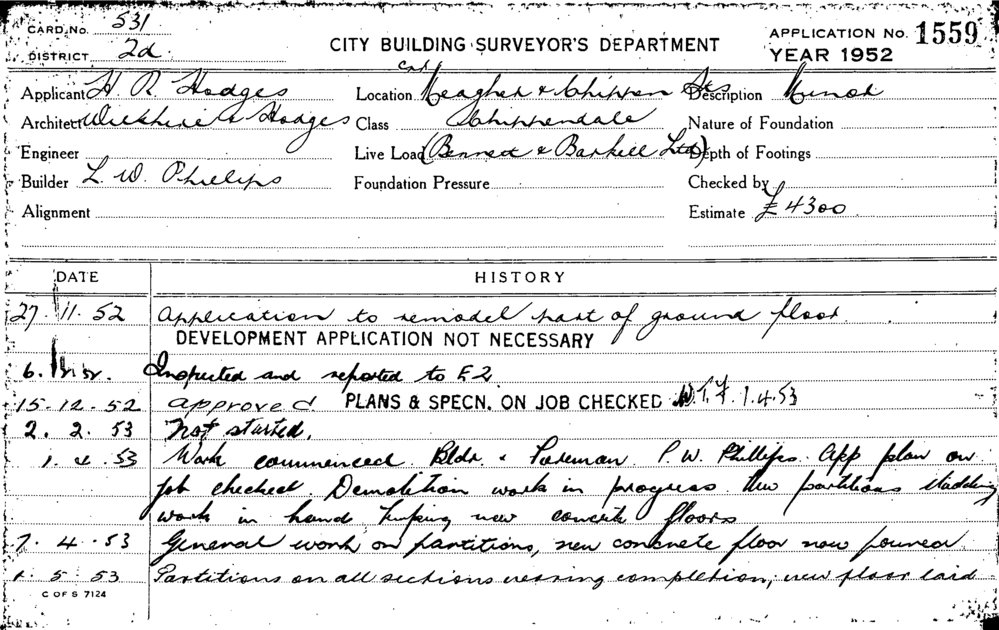 CARD No. 531
DISTRICT 2d
CITY BUILDING SURVEYOR'S DEPARTMENT
APPLICATION No. 1559
YEAR 1952
Applicant H. R. Hodges
Location Cnr Meagher & Chippen Sts
Description Minor
Architect Wilshire & Hodges
Class Chippendale
Nature of Foundation
Engineer
Live Load (Bennett & Barkell Ltd)
Depth of Footings
Builder L. W. Phillips
Foundation Pressure
Checked by
Alignment
Estimate £4300
DATE HISTORY
27. 11. 52 Application to remodel part of ground floor.
DEVELOPMENT APPLICATION NOT NECESSARY
6. 12. 52. Inspected and reported to E2.
15. 12. 52 approved PLANS & SPECN. ON JOB CHECKED 1.4.53
2. 2. 53 Not started.
1. 4. 53 Work commenced. Bldr. & Foreman P.W. Phillips. App plan on
job checked. Demolition work in progress. New partitions studding
work in hand new concrete floors
7. 4. 53 General work on partitions, new concrete floor now poured
1. 5. 53 Partitions on all sections nearing completion, new floor laid
C OF S 7124